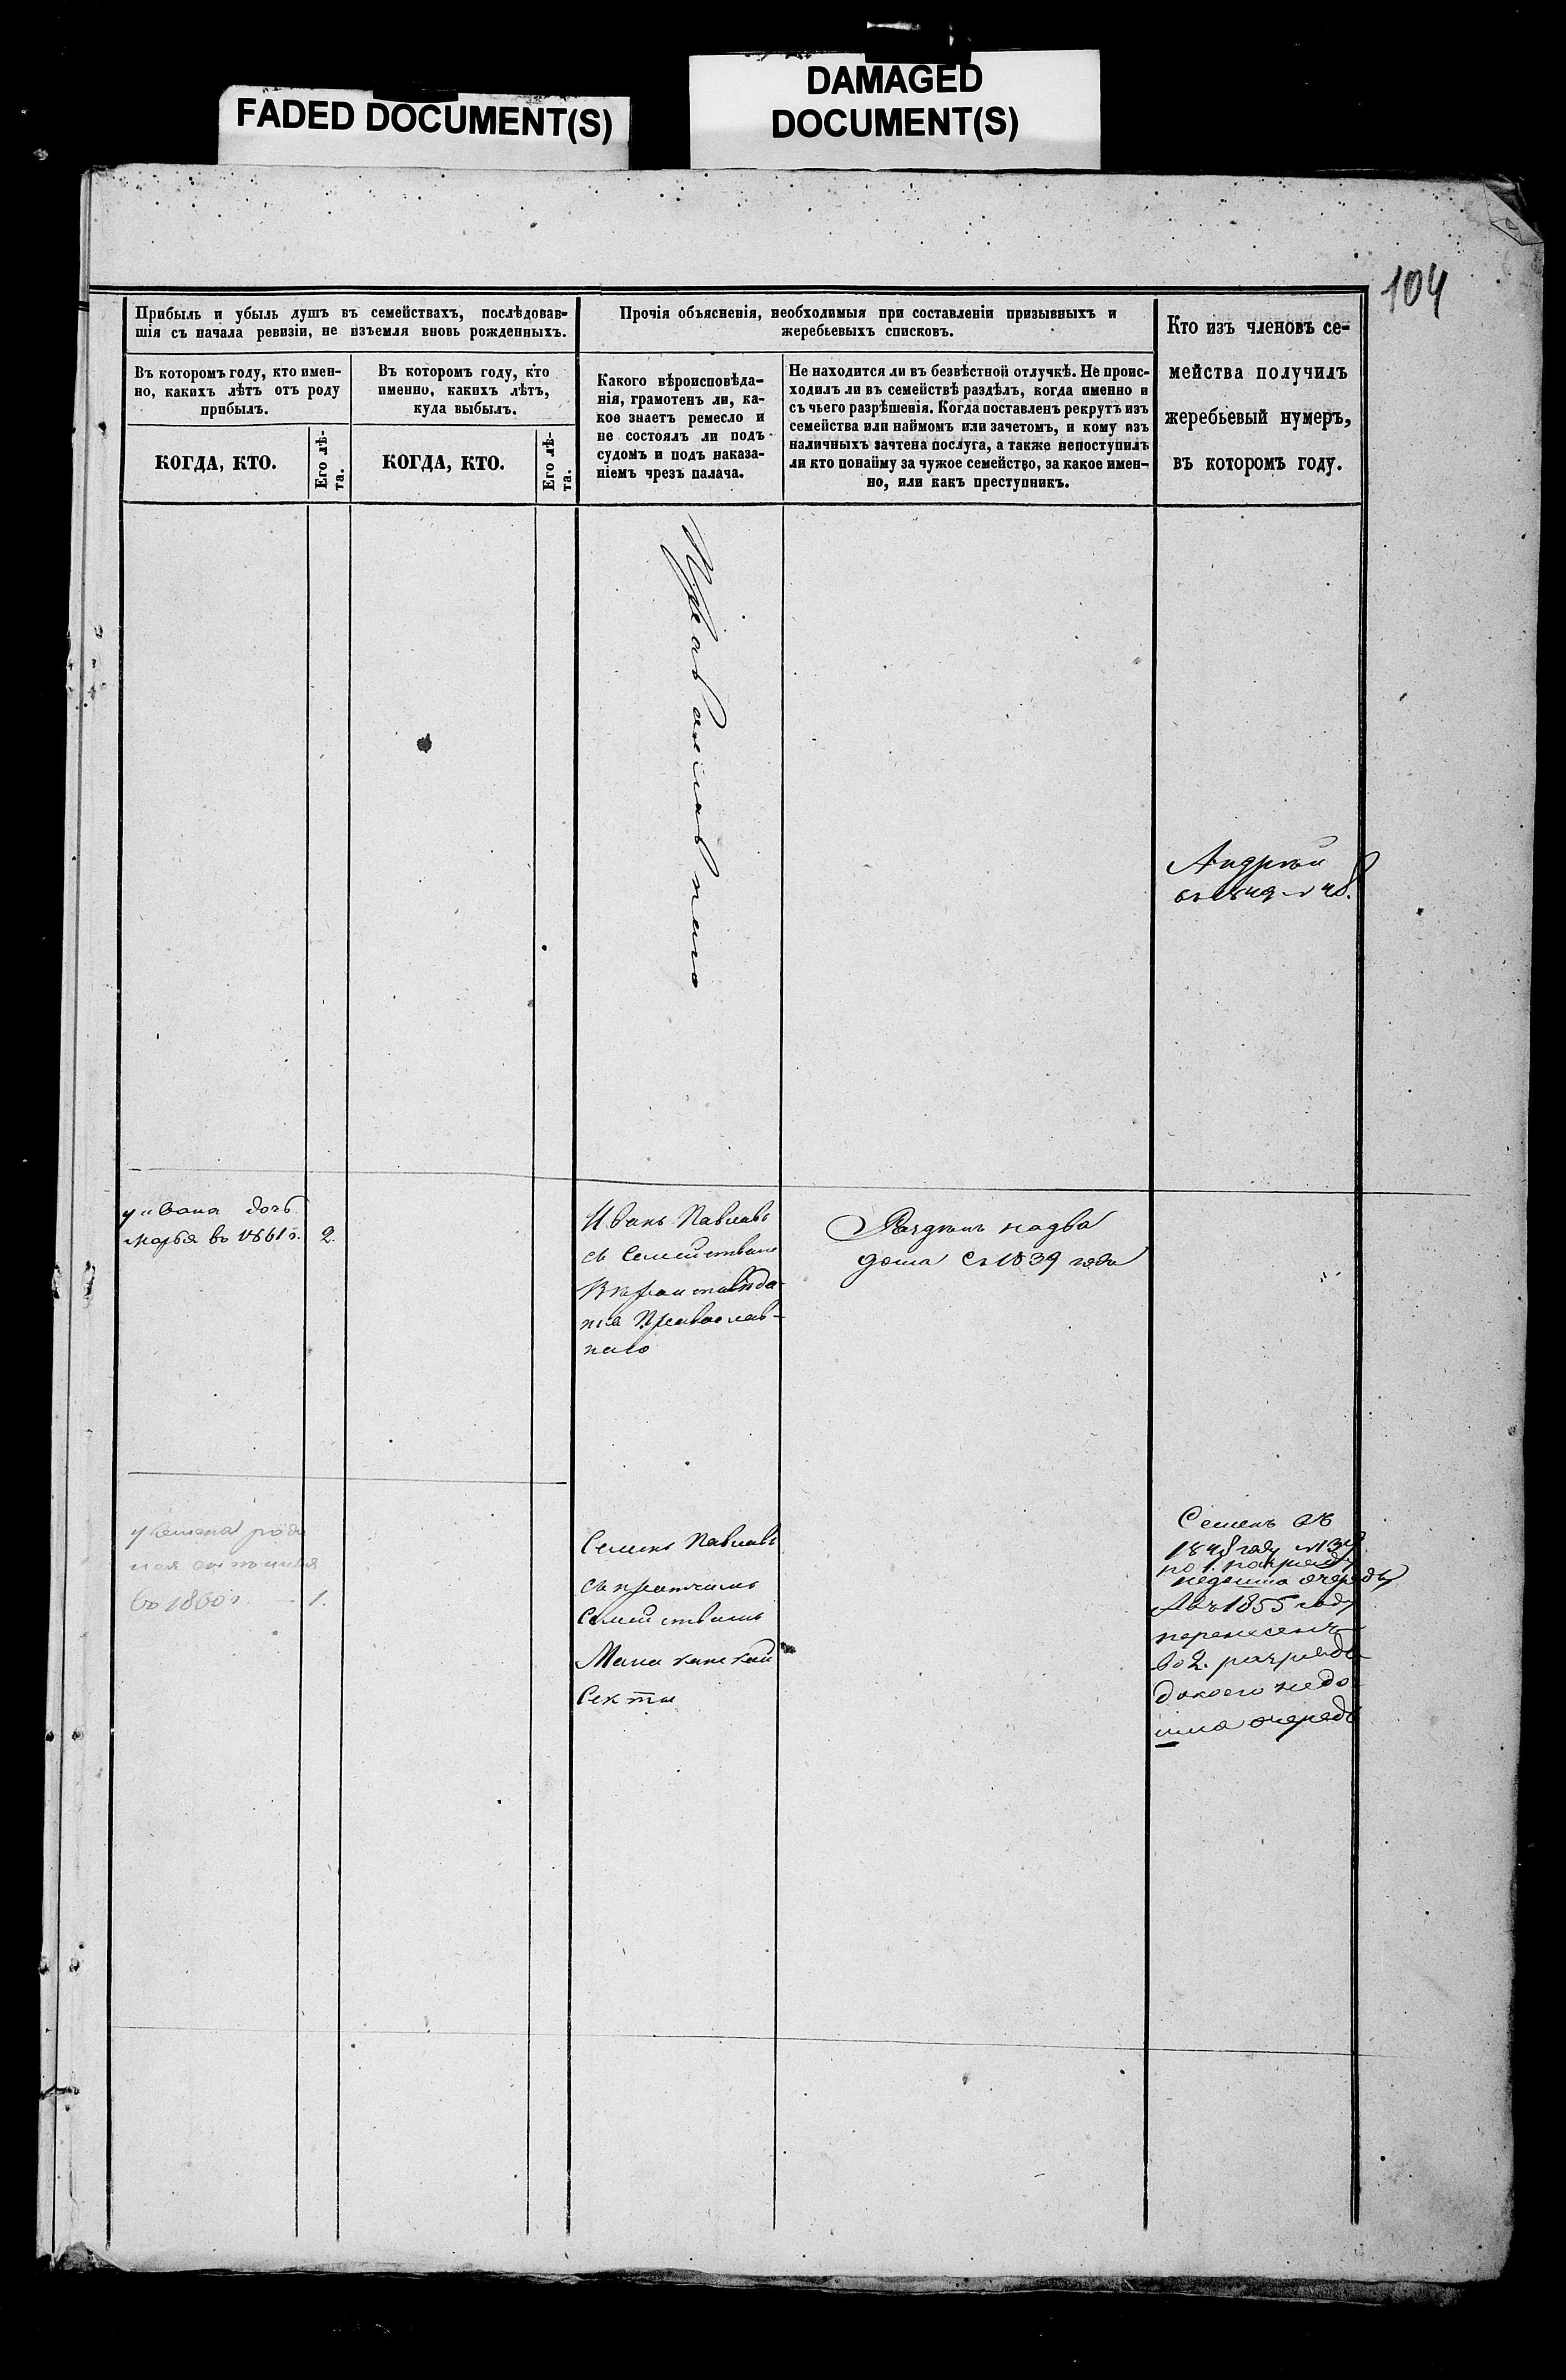 FADED DOCUMENT(S)
DAMAGED
DOCUMENT(S)
104
Прибыль и убыль душъ въ семействахъ, послѣдовав-
шія съ начала ревизіи, не изъемля вновь рожденныхъ.
Въ которомъ году, кто имен-
но, какихъ лѣтъ отъ роду
прибылъ.
КОГДА, КТО.
Его лѣ-
та.
Въ которомъ году, кто
именно, какихъ лѣтъ,
куда выбылъ.
КОГДА, КТО.
Его лѣ-
та.
Прочія объясненія, необходимыя при составленіи призывныхъ и
жеребьевыхъ списковъ.
Какого вѣроисповѣда-
нія, грамотенъ ли, ка-
кое знаетъ ремесло и
не состоялъ ли подъ
судомъ и подъ наказа-
ніемъ чрезъ палача.
Не находится ли въ безвѣстной отлучкѣ. Не проис-
ходилъ ли въ семействѣ раздѣлъ, когда именно и
съ чьего разрѣшенія. Когда поставленъ рекрутъ изъ
семейства или наймомъ или зачетомъ, и кому изъ
наличныхъ зачтена послуга, а также непоступилъ
ли кто понайму за чужое семейство, за какое имен-
но, или какъ преступникъ.
Кто изъ членовъ се-
мейства получилъ
жеребьевый нумеръ,
въ которомъ году.
Православнаго
Андрей
у ивана дочь
марья во 1861 г. 2.
Иванъ Павлавъ
съ Семействам
Православ-
наго
Раздѣлъ надва
дома съ 1839 года
у Семена
во 1860 г. 1.
Семенъ Павлавъ
съ прочимъ
Семействамъ
Малаканской
Секты
Семенъ въ
недошла очередь
Авъ 1855 году
во 2. разряда
докоего недо
шла очередь